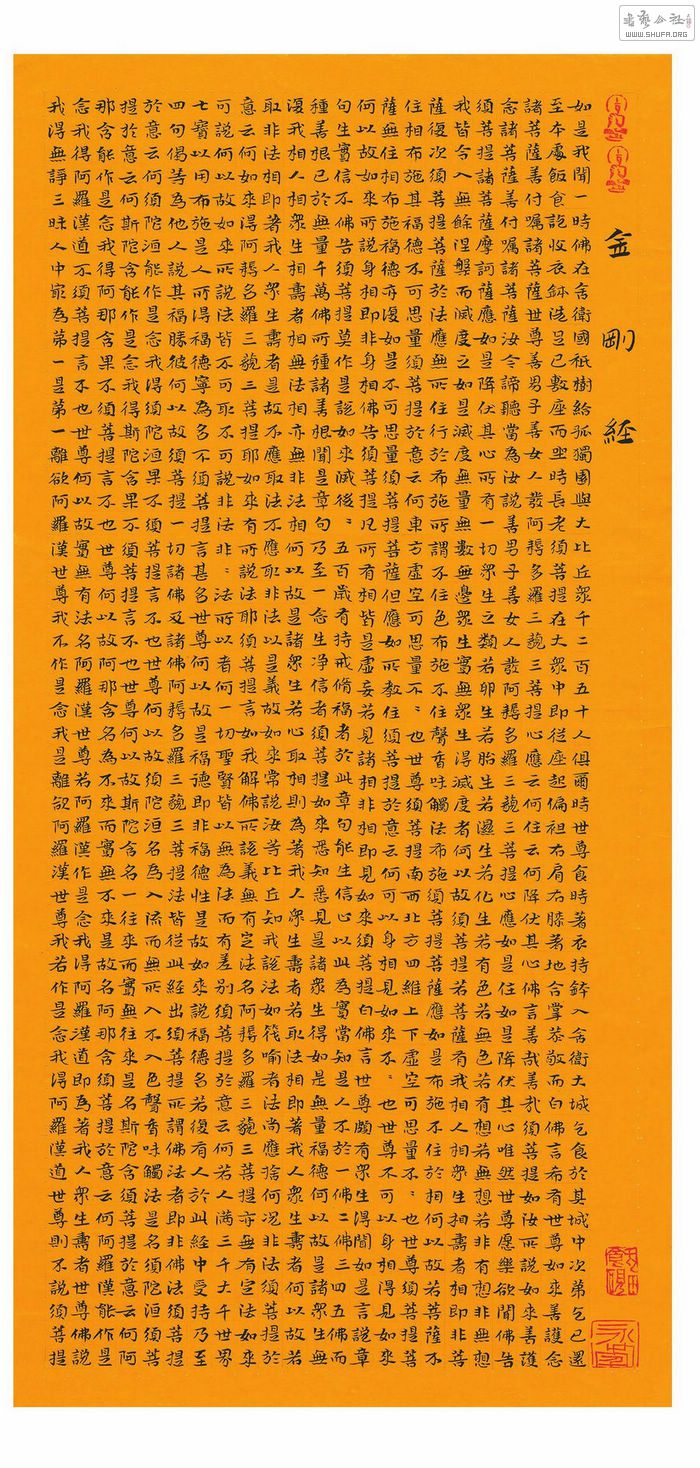 書藝公社
WWW.SHUFA.ORG
金剛經
如是我聞一時佛在舍衛國祇樹給孤獨園與大比丘眾千二百五十人俱爾時世尊食時著衣持鉢入舍衛大城乞食於其城中次第乞已還
至本處飯食訖收衣鉢洗足已敷座而坐時長老須菩提在大眾中即從座起偏袒右肩右膝著地合掌恭敬而白佛言希有世尊如來善護念
諸菩薩善付囑諸菩薩世尊善男子善女人發阿耨多羅三藐三菩提心應云何住云何降伏其心佛言善哉善哉須菩提如汝所說如來善護
念諸菩薩善付囑諸菩薩汝今諦聽當為汝說善男子善女人發阿耨多羅三藐三菩提心應如是住如是降伏其心唯然世尊願樂欲聞佛告
須菩提諸菩薩摩訶薩應如是降伏其心所有一切眾生之類若卵生若胎生若濕生若化生若有色若無色若有想若無想若非有想非無想
我皆令入無餘涅槃而滅度之如是滅度無量無數無邊眾生實無眾生得滅度者何以故須菩提若菩薩有我相人相眾生相壽者相即非菩
薩復次須菩提菩薩於法應無所住行於布施所謂不住色布施不住聲香味觸法布施須菩提菩薩應如是布施不住於相何以故若菩薩不
住相布施其福德不可思量須菩提於意云何東方虛空可思量不〻也世尊須菩提南西北方四維上下虛空可思量不〻也世尊須菩提菩
薩無住相布施福德亦復如是不可思量須菩提菩薩但應如所教住須菩提於意云何可以身相見如來不〻也世尊不可以身相得見如來
何以故如來所說身相即非身相佛告須菩提凡所有相皆是虛妄若見諸相非相即見如來須菩提白佛言世尊頗有眾生得聞如是言說章
句生實信不佛告須菩提莫作是說如來滅後〻五百歲有持戒脩福者於此章句能生信心以此為實當知是人不於一佛二佛三四五佛而
種善根已於無量千萬佛所種諸善根聞是章句乃至一念生淨信者須菩提如來悉知悉見是諸眾生得如是無量福德何以故是諸眾生無
復我相人相眾生相壽者相無法相亦無非法相何以故是諸眾生若心取相則為著我人眾生壽者若取法相即著我人眾生壽者何以故若
取非法相即著我人眾生壽者是故不應取法不應取非法以是義故如來常說汝等比丘知我說法如筏喻者法尚應捨何況非法須菩提於
意云何如來得阿耨多羅三藐三菩提耶如來有所說法耶須菩提言如我解佛所說義無有定法名阿耨多羅三藐三菩提亦無有定法如來
可說何以故如來所說法皆不可取不可說非法非〻法所以者何一切聖賢皆以無為法而有差別須菩提於意云何若人滿三千大千世界
七寶以用布施是人所得福德寧為多不須菩提言甚多世尊何以故是福德即非福德性是故如來說福德多若復有人於此經中受持乃至
四句偈等為他人說其福勝彼何以故須菩提一切諸佛及諸佛阿耨多羅三藐三菩提法皆從此經出須菩提所謂佛法者即非佛法須菩提
於意云何須陀洹能作是念我得須陀洹果不須菩提言不也世尊何以故須陀洹名為入流而無所入不入色聲香味觸法是名須陀洹須菩
提於意云何斯陀含能作是念我得斯陀含果不須菩提言不也世尊何以故斯陀含名一往來而實無往來是名斯陀含須菩提於意云何阿
那含能作是念我得阿那含果不須菩提言不也世尊何以故阿那含名為不來而實無不來是故名阿那含須菩提於意云何阿羅漢能作是
念我得阿羅漢道不須菩提言不也世尊何以故實無有法名阿羅漢世尊若阿羅漢作是念我得阿羅漢道即為著我人眾生壽者世尊佛說
我得無諍三昧人中最為第一是第一離欲阿羅漢世尊我不作是念我是離欲阿羅漢世尊我若作是念我得阿羅漢道世尊則不說須菩提